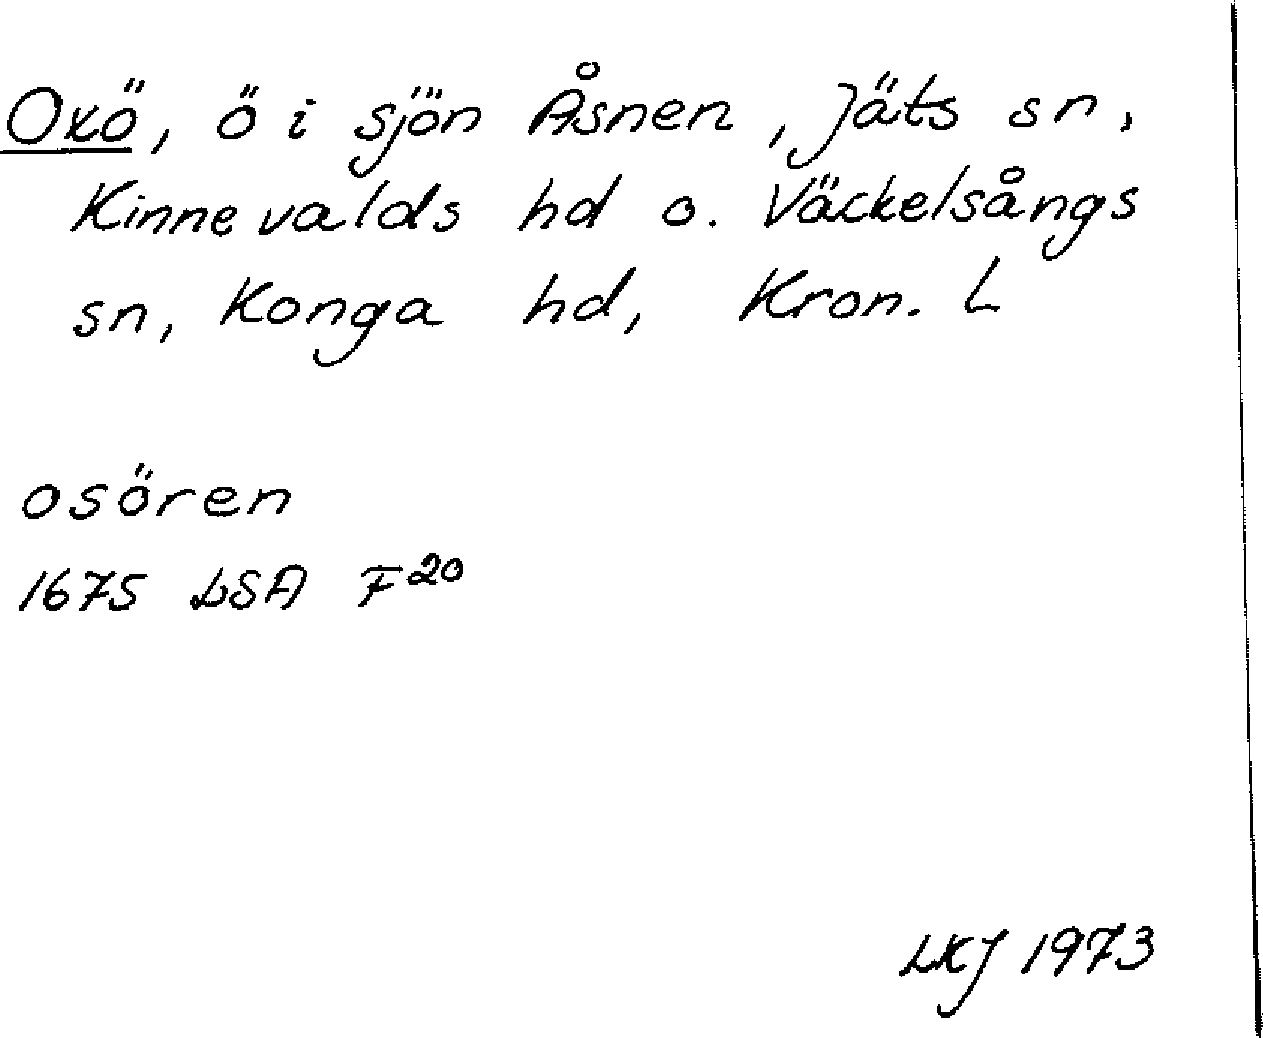 Oxö, ö i sjön Åsnen, Jäts sn,
Kinnevalds hd o. Väckelsångs
sn, Konga hd, Kron. L
osören
1675 LSA F20
LKJ 1973